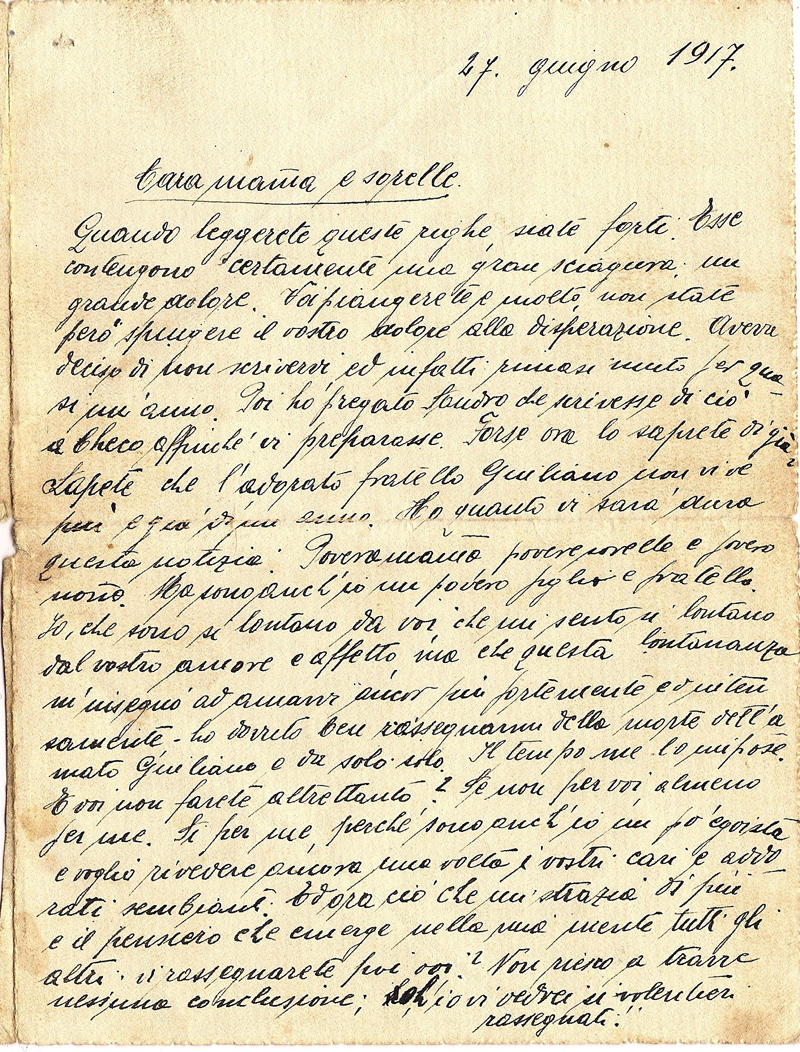 27. giugno 1917.
Cara mam̃a e sorelle.
Quando leggerete queste righe siate forti. Esse
contengono certamente una gran sciagura, un
grande dolore. Voi piangerete e molto, non state
però spingere il vostro dolore alla disperazione. Avevo
deciso di non scrivervi ed infatti rimasi muto per qua-
si un'anno. Poi ho pregato Sandro che scrivesse di ciò
a Checo affinchè vi preparasse. Forse ora lo saprete di già?
Sapete che l'adorato fratello Giuliano non vive
più e già di un anno. Ho quanto vi sarà dura
questa notizia. Povera mam̃a povere sorelle e povero
nono. Ma sono anch'io un povero figlio e fratello.
Io, che sono sì lontano da voi che mi sento sì lontano
dal vostro amore e affetto ma che questa lontananza
m'insegnò ad amarvi ancor più fortemente ed inten
samente, ho dovuto ben rassegnarmi della morte dell'a
mato Giuliano e da solo solo. Il tempo me lo impose.
E voi non farete altrettanto? Se non per voi almeno
per me. Si per me, perchè sono anch'io un pò egoista
e voglio rivedere ancora una volta i vostri cari e ado
rati sembianti. Ed ora ciò che mi strazia di più
e il pensiero che emerge nella mia mente tutti gli
altri: vi rassegnarete poi voi? Non riesco a trarre
nessuna conclusione; Soh, io vi vedrei si volentieri
rassegnati!!